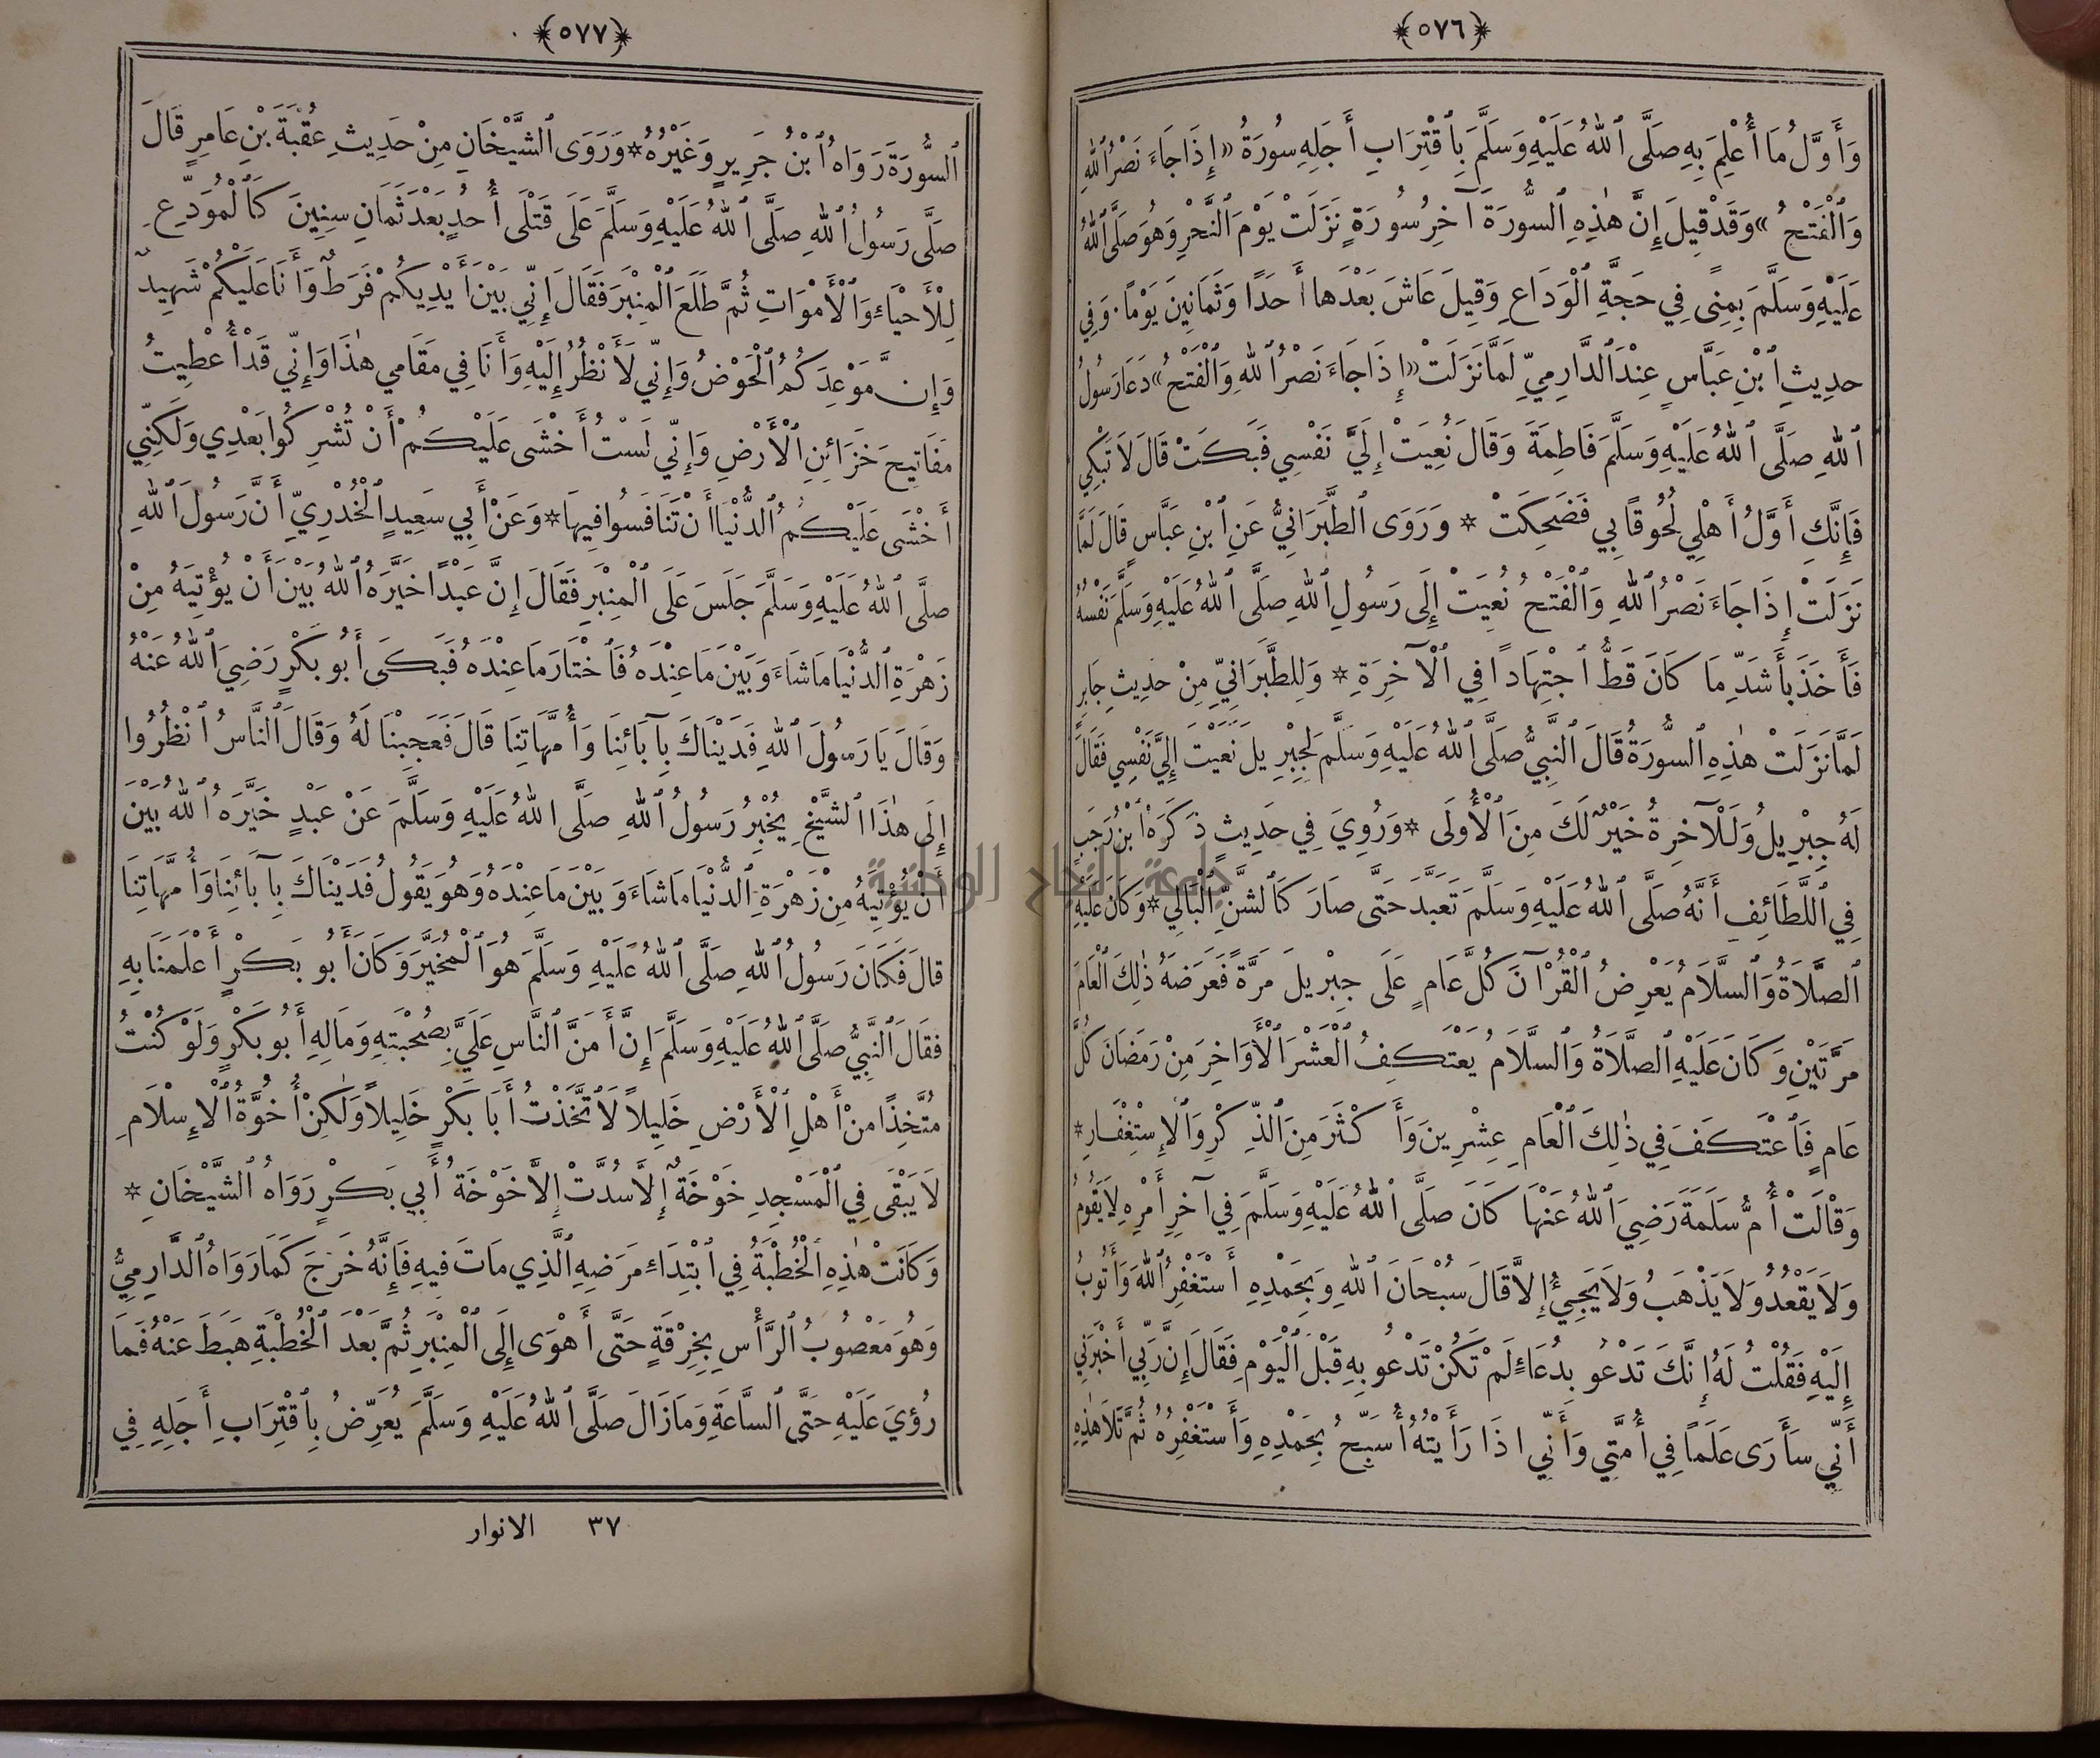 ﴿٥٧٦﴾
وَأَوَّلُ مَا أُعْلِمَ بِهِ صَلَّى ٱللهُ عَلَيْهِ وَسَلَّمَ بِٱقْتِرَابِ أَجَلِهِ سُورَةُ «إِذَا جَاءَ نَصْرُ ٱللهِ
وَٱلْفَتْحُ» وَقَدْ قِيلَ إِنَّ هٰذِهِ ٱلسُّورَةَ آخِرُ سُورَةٍ نَزَلَتْ يَوْمَ ٱلنَّحْرِ وَهُوَ صَلَّى ٱللهُ
عَلَيْهِ وَسَلَّمَ بِمِنًى فِي حَجَّةِ ٱلْوَدَاعِ وَقِيلَ عَاشَ بَعْدَهَا أَحَدًا وَثَمَانِينَ يَوْمًا. وَفِي
حَدِيثِ ٱبْنِ عَبَّاسٍ عِنْدَ ٱلدَّارِمِيِّ لَمَّا نَزَلَتْ «إِذَا جَاءَ نَصْرُ ٱللهِ وَٱلْفَتْحُ» دَعَا رَسُولُ
ٱللهِ صَلَّى ٱللهُ عَلَيْهِ وَسَلَّمَ فَاطِمَةَ وَقَالَ نُعِيَتْ إِلَيَّ نَفْسِي فَبَكَتْ قَالَ لَا تَبْكِي
فَإِنَّكِ أَوَّلُ أَهْلِي لُحُوقًا بِي فَضَحِكَتْ * وَرَوَى ٱلطَّبَرَانِيُّ عَنِ ٱبْنِ عَبَّاسٍ قَالَ لَمَّا
نَزَلَتْ إِذَا جَاءَ نَصْرُ ٱللهِ وَٱلْفَتْحُ نُعِيَتْ إِلَى رَسُولِ ٱللهِ صَلَّى ٱللهُ عَلَيْهِ وَسَلَّمَ نَفْسُهُ
فَأَخَذَ بِأَشَدِّ مَا كَانَ قَطُّ ٱجْتِهَادًا فِي ٱلْآخِرَةِ * وَلِلطَّبَرَانِيِّ مِنْ حَدِيثِ جَابِرٍ
لَمَّا نَزَلَتْ هٰذِهِ ٱلسُّورَةُ قَالَ ٱلنَّبِيُّ صَلَّى ٱللهُ عَلَيْهِ وَسَلَّمَ لِجِبْرِيلَ نَعَيْتَ إِلَيَّ نَفْسِي فَقَالَ
لَهُ جِبْرِيلُ وَلَلْآخِرَةُ خَيْرٌ لَكَ مِنَ ٱلْأُولَى * وَرُوِيَ فِي حَدِيثٍ ذَكَرَهُ ٱبْنُ رَجَبٍ
فِي ٱللَّطَائِفِ أَنَّهُ صَلَّى ٱللهُ عَلَيْهِ وَسَلَّمَ تَعَبَّدَ حَتَّى صَارَ كَٱلشَّنِّ ٱلْبَالِي * وَكَانَ عَلَيْهِ
ٱلصَّلَاةُ وَٱلسَّلَامُ يَعْرِضُ ٱلْقُرْآنَ كُلَّ عَامٍ عَلَى جِبْرِيلَ مَرَّةً فَعَرَضَهُ ذٰلِكَ ٱلْعَامَ
مَرَّتَيْنِ وَكَانَ عَلَيْهِ ٱلصَّلَاةُ وَٱلسَّلَامُ يَعْتَكِفُ ٱلْعَشْرَ ٱلْأَوَاخِرَ مِنْ رَمَضَانَ كُلَّ
عَامٍ فَٱعْتَكَفَ فِي ذٰلِكَ ٱلْعَامِ عِشْرِينَ وَأَكْثَرَ مِنَ ٱلذِّكْرِ وَٱلْإِسْتِغْفَارِ *
وَقَالَتْ أُمُّ سَلَمَةَ رَضِيَ ٱللهُ عَنْهَا كَانَ صَلَّى ٱللهُ عَلَيْهِ وَسَلَّمَ فِي آخِرِ أَمْرِهِ لَا يَقُومُ
وَلَا يَقْعُدُ وَلَا يَذْهَبُ وَلَا يَجِيءُ إِلَّا قَالَ سُبْحَانَ ٱللهِ وَبِحَمْدِهِ أَسْتَغْفِرُ ٱللهَ وَأَتُوبُ
إِلَيْهِ فَقُلْتُ لَهُ إِنَّكَ تَدْعُو بِدُعَاءٍ لَمْ تَكُنْ تَدْعُو بِهِ قَبْلَ ٱلْيَوْمِ فَقَالَ إِنَّ رَبِّي أَخْبَرَنِي
أَنِّي سَأَرَى عَلَمًا فِي أُمَّتِي وَأَنِّي إِذَا رَأَيْتُهُ أُسَبِّحُ بِحَمْدِهِ وَأَسْتَغْفِرُهُ ثُمَّ تَلَا هٰذِهِ
﴿٥٧٧﴾
ٱلسُّورَةَ رَوَاهُ ٱبْنُ جَرِيرٍ وَغَيْرُهُ * وَرَوَى ٱلشَّيْخَانِ مِنْ حَدِيثِ عُقْبَةَ بْنِ عَامِرٍ قَالَ
صَلَّى رَسُولُ ٱللهِ صَلَّى ٱللهُ عَلَيْهِ وَسَلَّمَ عَلَى قَتْلَى أُحُدٍ بَعْدَ ثَمَانِ سِنِينَ كَٱلْمُوَدِّعِ
لِلْأَحْيَاءِ وَٱلْأَمْوَاتِ ثُمَّ طَلَعَ ٱلْمِنْبَرَ فَقَالَ إِنِّي بَيْنَ أَيْدِيكُمْ فَرَطٌ وَأَنَا عَلَيْكُمْ شَهِيدٌ
وَإِنَّ مَوْعِدَكُمُ ٱلْحَوْضُ وَإِنِّي لَأَنْظُرُ إِلَيْهِ وَأَنَا فِي مَقَامِي هٰذَا وَإِنِّي قَدْ أُعْطِيتُ
مَفَاتِيحَ خَزَائِنِ ٱلْأَرْضِ وَإِنِّي لَسْتُ أَخْشَى عَلَيْكُمْ أَنْ تُشْرِكُوا بَعْدِي وَلَكِنِّي
أَخْشَى عَلَيْكُمُ ٱلدُّنْيَا أَنْ تَنَافَسُوا فِيهَا * وَعَنْ أَبِي سَعِيدٍ ٱلْخُدْرِيِّ أَنَّ رَسُولَ ٱللهِ
صَلَّى ٱللهُ عَلَيْهِ وَسَلَّمَ جَلَسَ عَلَى ٱلْمِنْبَرِ فَقَالَ إِنَّ عَبْدًا خَيَّرَهُ ٱللهُ بَيْنَ أَنْ يُؤْتِيَهُ مِنْ
زَهْرَةِ ٱلدُّنْيَا مَا شَاءَ وَبَيْنَ مَا عِنْدَهُ فَٱخْتَارَ مَا عِنْدَهُ فَبَكَى أَبُو بَكْرٍ رَضِيَ ٱللهُ عَنْهُ
وَقَالَ يَا رَسُولَ ٱللهِ فَدَيْنَاكَ بِآبَائِنَا وَأُمَّهَاتِنَا قَالَ فَعَجِبْنَا لَهُ وَقَالَ ٱلنَّاسُ ٱنْظُرُوا
إِلَى هٰذَا ٱلشَّيْخِ يُخْبِرُ رَسُولُ ٱللهِ صَلَّى ٱللهُ عَلَيْهِ وَسَلَّمَ عَنْ عَبْدٍ خَيَّرَهُ ٱللهُ بَيْنَ
أَنْ يُؤْتِيَهُ مِنْ زَهْرَةِ ٱلدُّنْيَا مَا شَاءَ وَبَيْنَ مَا عِنْدَهُ وَهُوَ يَقُولُ فَدَيْنَاكَ بِآبَائِنَا وَأُمَّهَاتِنَا
قَالَ فَكَانَ رَسُولُ ٱللهِ صَلَّى ٱللهُ عَلَيْهِ وَسَلَّمَ هُوَ ٱلْمُخَيَّرَ وَكَانَ أَبُو بَكْرٍ أَعْلَمَنَا بِهِ
فَقَالَ ٱلنَّبِيُّ صَلَّى ٱللهُ عَلَيْهِ وَسَلَّمَ إِنَّ أَمَنَّ ٱلنَّاسِ عَلَيَّ بِصُحْبَتِهِ وَمَالِهِ أَبُو بَكْرٍ وَلَوْ كُنْتُ
مُتَّخِذًا مِنْ أَهْلِ ٱلْأَرْضِ خَلِيلاً لَاتَّخَذْتُ أَبَا بَكْرٍ خَلِيلاً وَلٰكِنْ أُخُوَّةُ ٱلْإِسْلَامِ
لَا يَبْقَى فِي ٱلْمَسْجِدِ خَوْخَةٌ إِلَّا سُدَّتْ إِلَّا خَوْخَةُ أَبِي بَكْرٍ رَوَاهُ ٱلشَّيْخَانِ *
وَكَانَتْ هٰذِهِ ٱلْخُطْبَةُ فِي ٱبْتِدَاءِ مَرَضِهِ ٱلَّذِي مَاتَ فِيهِ فَإِنَّهُ خَرَجَ كَمَا رَوَاهُ ٱلدَّارِمِيُّ
وَهُوَ مَعْصُوبُ ٱلرَّأْسِ بِخِرْقَةٍ حَتَّى أَهْوَى إِلَى ٱلْمِنْبَرِ ثُمَّ بَعْدَ ٱلْخُطْبَةِ هَبَطَ عَنْهُ فَمَا
رُؤِيَ عَلَيْهِ حَتَّى ٱلسَّاعَةِ وَمَا زَالَ صَلَّى ٱللهُ عَلَيْهِ وَسَلَّمَ يُعَرِّضُ بِٱقْتِرَابِ أَجَلِهِ فِي
٣٧ الانوار
جامعة النجاح الوطنية